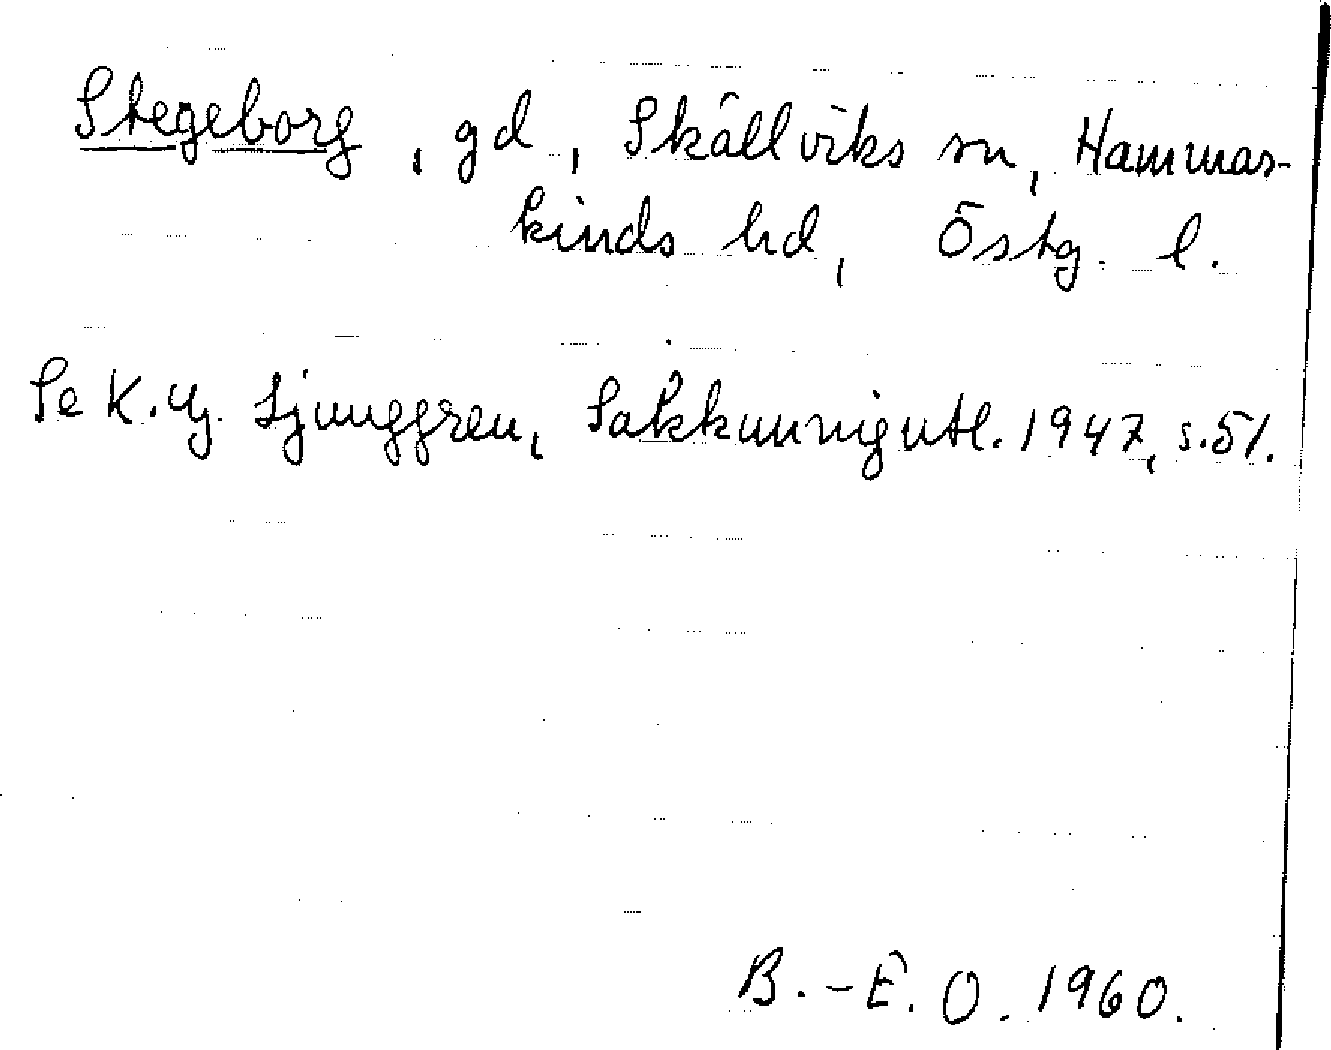 Stegeborg, gd, Skällviks sn, Hammar-
kinds hd, Östg. l.
Se K. G. Ljunggren, Sakkunnigutl. 1947, s. 51.
B.-E. O. 1960.